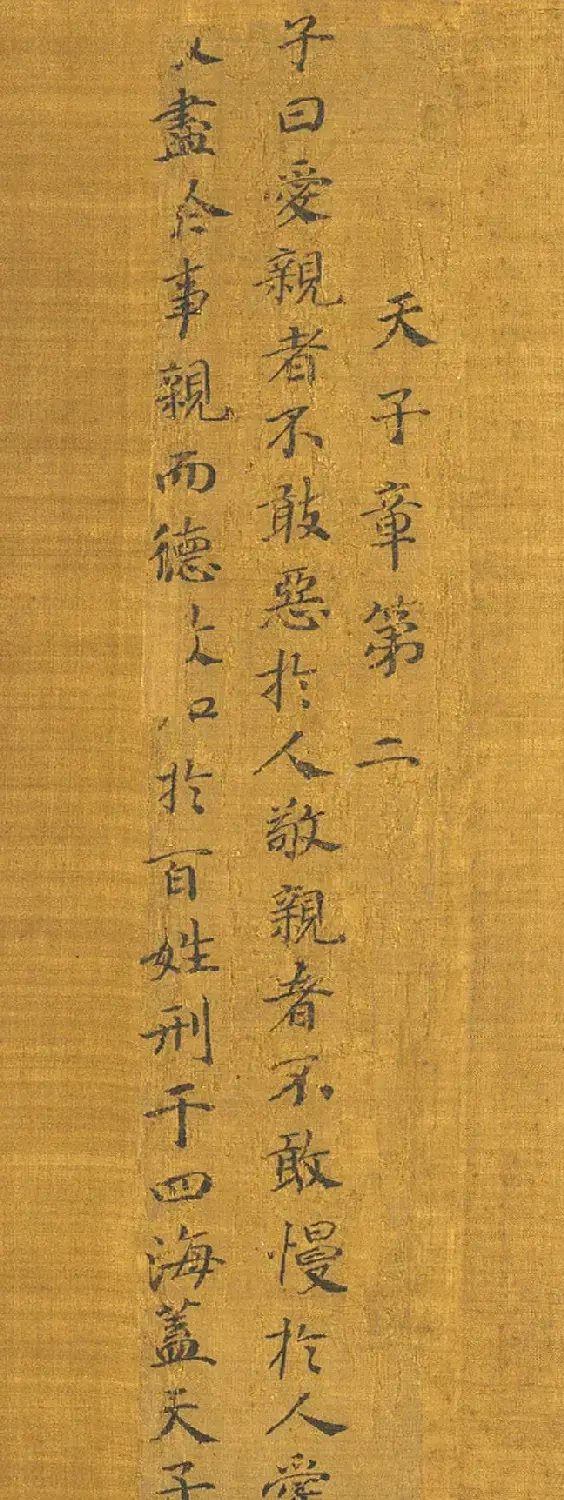 天子章第二
子曰愛親者不敢惡於人敬親者不敢慢於人愛
盡事親而德於百姓刑于四海蓋天子